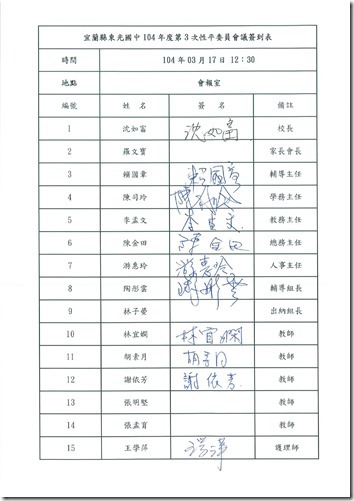 宜蘭縣東光國中 104 年度第 3 次性平委員會議簽到表
時間 104 年 03 月 17 日 12：30
地點 會報室
編號 姓 名 簽 名 備註
1 沈如富 沈如富 校長
2 羅文寶 家長會長
3 賴國章 賴國章 輔導主任
4 陳司玲 學務主任
5 李孟文 李孟文 教務主任
6 陳金田 陳金田 總務主任
7 游惠玲 游惠玲 人事主任
8 陶彤雲 輔導組長
9 林子螢 出納組長
10 林宜嫻 林宜嫻 教師
11 胡素月 胡素月 教師
12 謝依芳 謝依芳 教師
13 張明堅 教師
14 張孟育 教師
15 王學萍 護理師